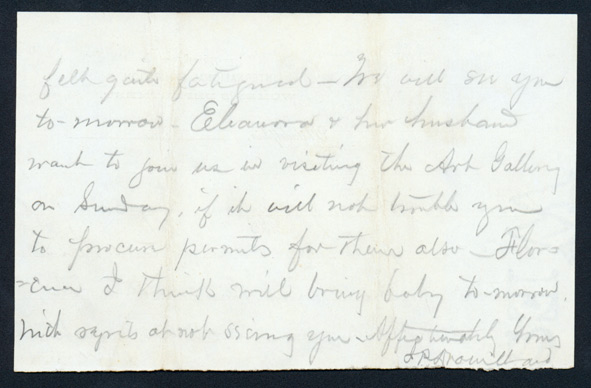 felt quite fatigued - We will see you
to-morrow - Eleanora & her husband
want to join us in visiting the Art Gallery
on Sunday, if it will not trouble you
to procure permits for them also - Flor=
=ence I think will bring baby to-morrow.
With regrets at not seeing you - Affectionately Yours